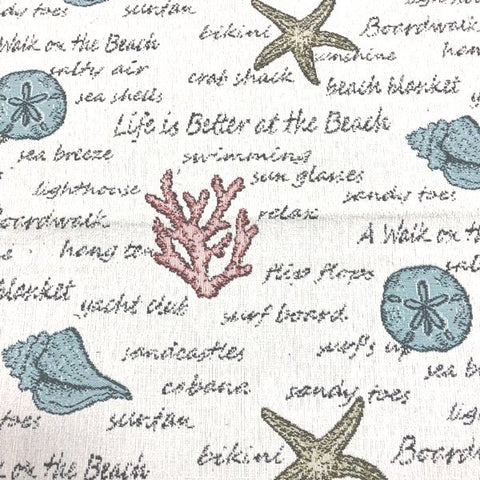 boardwalk suntan
bikini Boardwalk
Walk on the Beach
sunshine
salty air crab shack beach blanket
sea shells
Life is Better at the Beach
sea breeze swimming
sun glasses
lighthouse sandy toes
Boardwalk relax
A Walk on th
hang ten flip flops salt
blanket yacht club surf board
sandcastles surf's up
cabana sandy toes sea b
suntan ligh
bikini Boardwalk
alk on the Beach hang